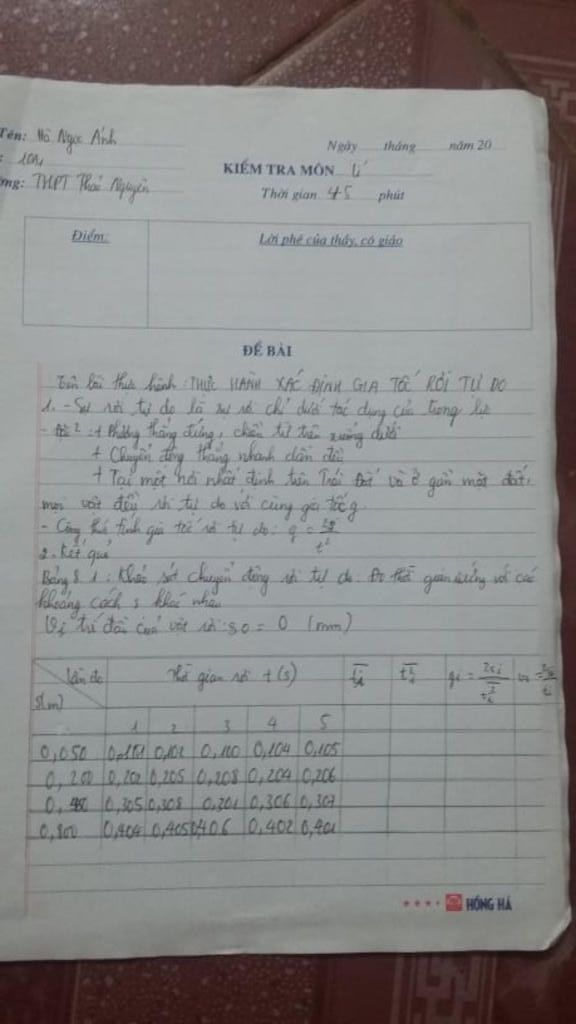 Tên: Hồ Ngọc Ánh
Ngày tháng năm 20
: 10A1
KIỂM TRA MÔN Lí
ng: THPT Thái Nguyên
Thời gian 45 phút
Điểm:
Lời phê của thầy, cô giáo
ĐỀ BÀI
Tên bài thực hành: THỰC HÀNH XÁC ĐỊNH GIA TỐC RƠI TỰ DO
1. - Sự rơi tự do là sự rơi chỉ dưới tác dụng của trọng lực
- Đặc²: + Phương thẳng đứng, chiều từ trên xuống dưới
+ Chuyển động thẳng nhanh dần đều
+ Tại một nơi nhất định trên Trái Đất và ở gần mặt đất,
mọi vật đều rơi tự do với cùng gia tốc g.
- Công thức tính gia tốc rơi tự do: g = 2s/t²
2. Kết quả
Bảng 8.1: Khảo sát chuyển động rơi tự do: Đo thời gian ứng với các
khoảng cách s khác nhau
Vị trí đầu của vật rơi: s0 = 0 (mm)
Lần đo Thời gian rơi t (s) gi = 2si/ti² vi = 2si/ti
s(m)
1 2 3 4 5
0,050 0,102 0,100 0,104 0,105
0,200 0,202 0,205 0,208 0,204 0,206
0,305 0,308 0,301 0,306 0,307
0,800 0,404 0,405 0,406 0,402 0,401
HỒNG HÀ